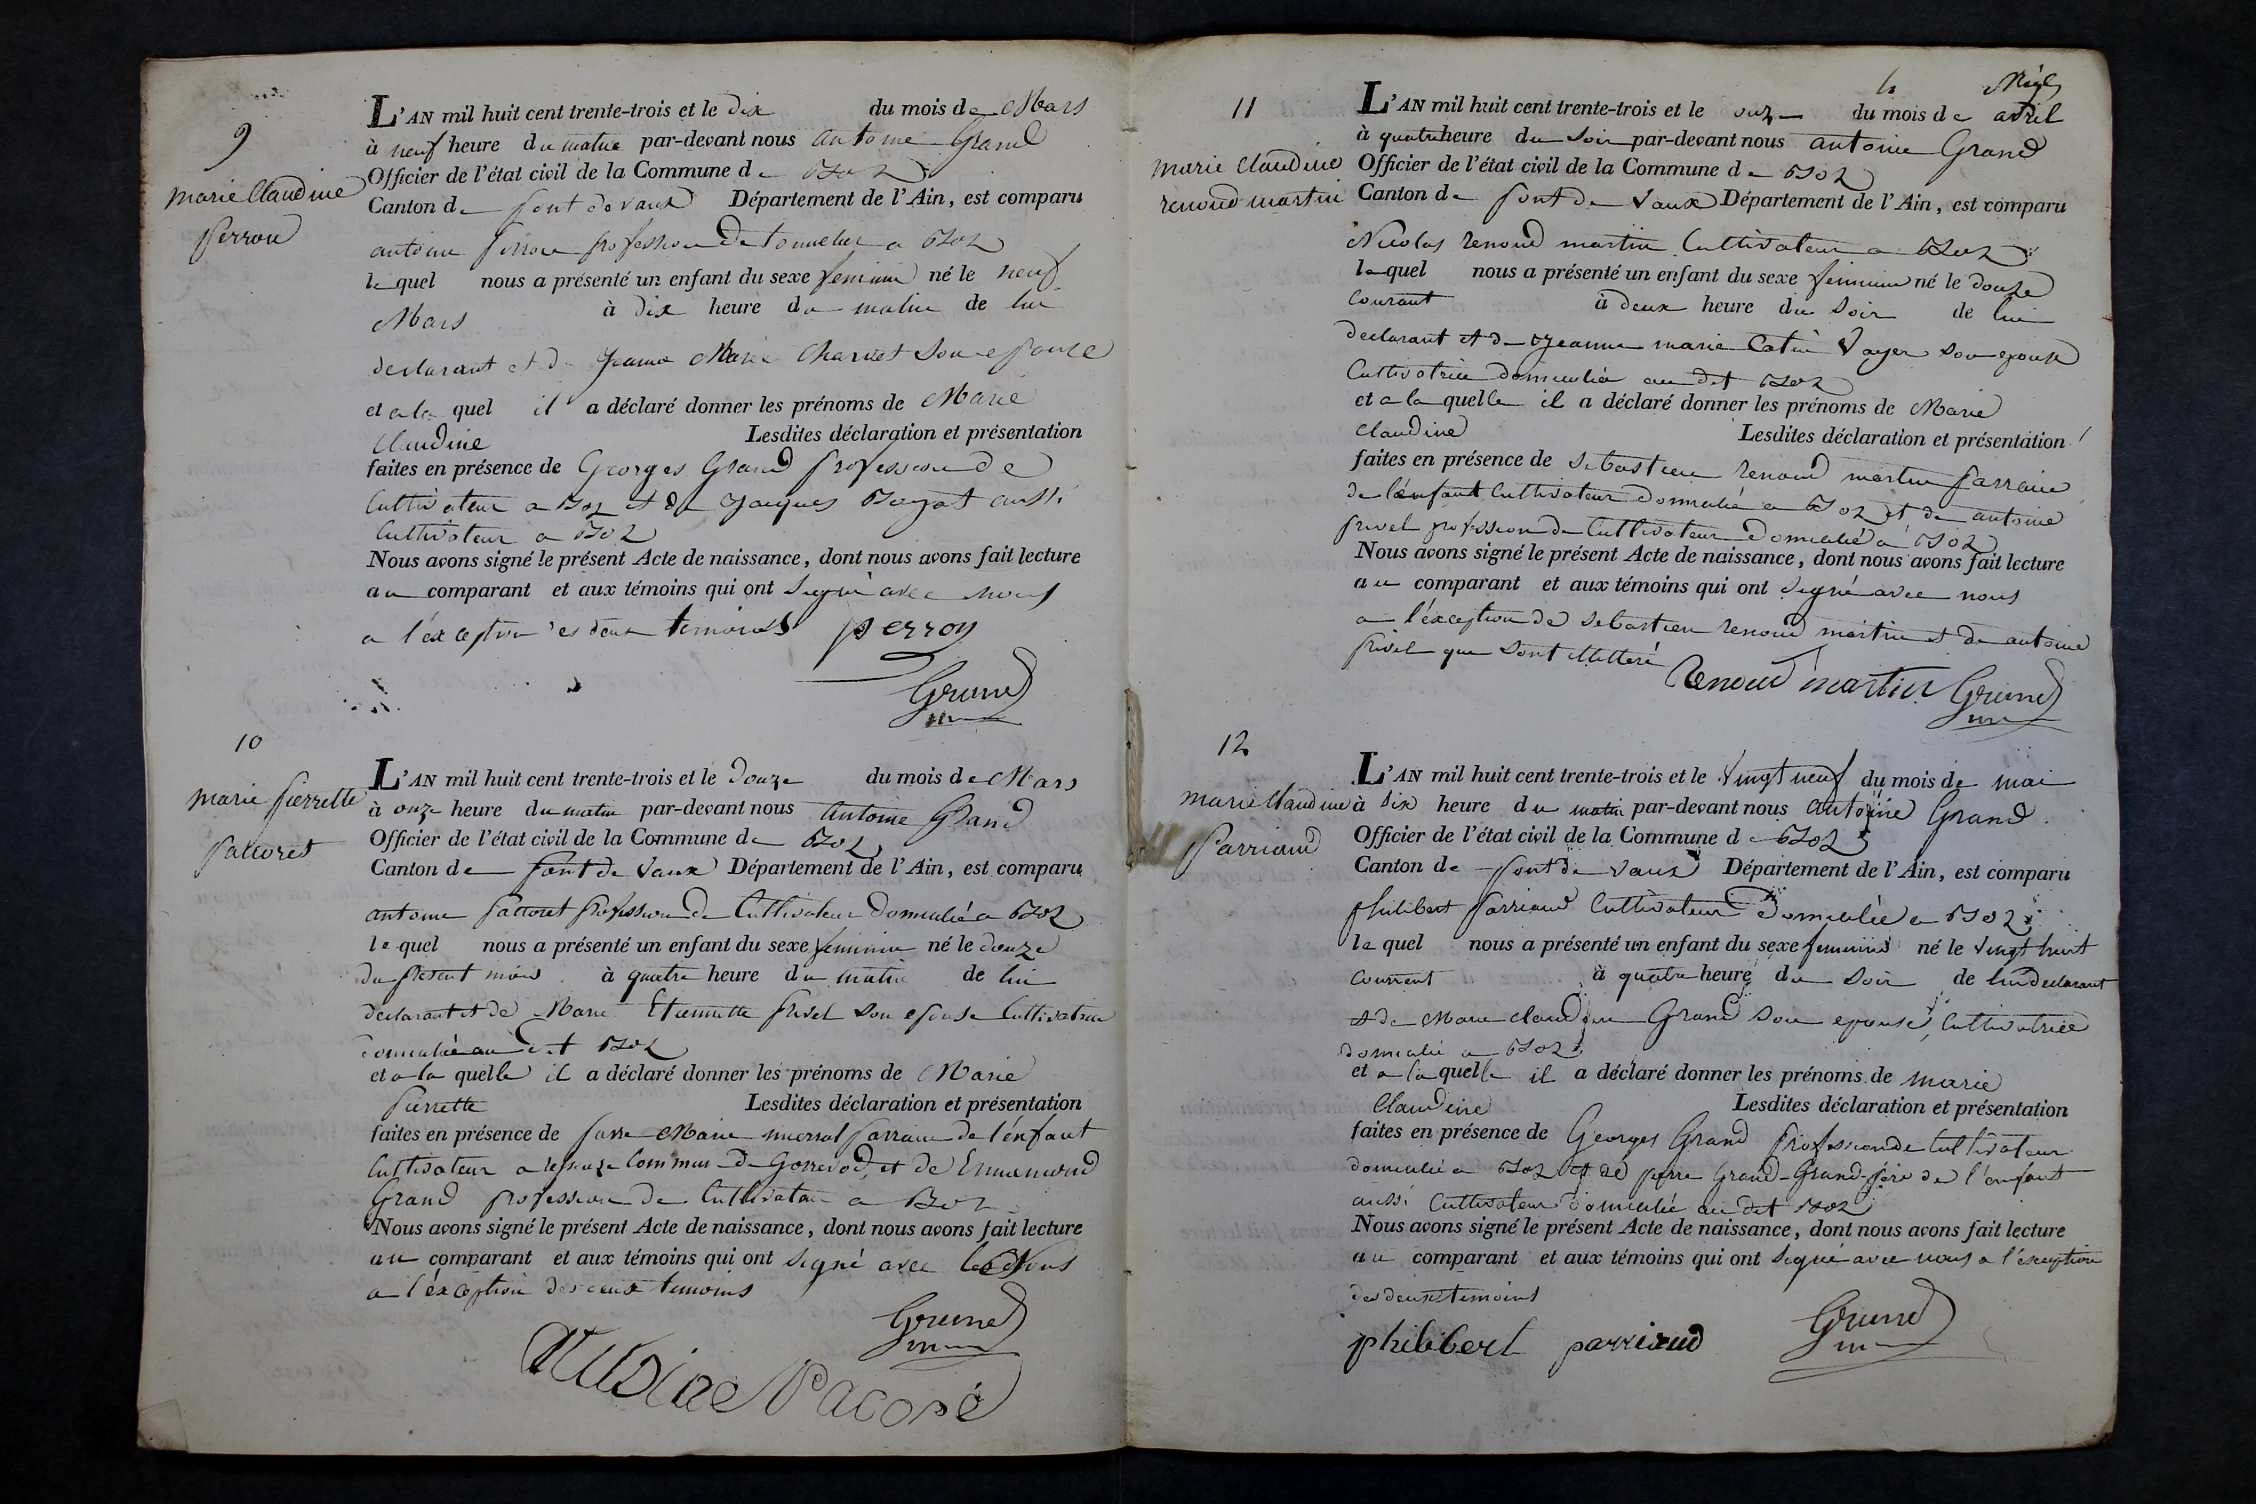 9
marie Claudine
perron
L'AN mil huit cent trente-trois et le dix du mois de Mars
à neuf heure du matin par-devant nous antoine Grand
Officier de l'état civil de la Commune de Boz
Canton de pont de vaux Département de l'Ain, est comparu
antoine perron profession de tonnelier a Boz
le quel nous a présenté un enfant du sexe feminin né le neuf
Mars à dix heure du matin de lui
declarant et de Jeanne Marie Charvet son epouse
et a la quel il a déclaré donner les prénoms de Marie
Claudine Lesdites déclaration et présentation
faites en présence de Georges Grand profession de
Cultivateur a Boz et de Jacques Boyat aussi
Cultivateur a Boz
Nous avons signé le présent Acte de naissance, dont nous avons fait lecture
au comparant et aux témoins qui ont signé avec nous
a l'éxception des deux temoins perron
Grand
10
marie pierrette
pacoret
L'AN mil huit cent trente-trois et le douze du mois de Mars
à onze heure du matin par-devant nous antoine Grand
Officier de l'état civil de la Commune de Boz
Canton de pont de vaux Département de l'Ain, est comparu
antoine paccoret profession de Cultivateur domicilié a Boz
le quel nous a présenté un enfant du sexe feminin né le douze
du present mois à quatre heure du matin de lui
declarant et de Marie Etiennette privel son epouse Cultivatrice
domicilié au dit Boz
et a la quelle il a déclaré donner les prénoms de Marie
pierrette Lesdites déclaration et présentation
faites en présence de Marie parrain de l'énfant
Cultivateur a Commune de Gorrevod, et de Ennemond
Grand profession de Cultivateur a Boz
Nous avons signé le présent Acte de naissance, dont nous avons fait lecture
au comparant et aux témoins qui ont signé avec Nous
a l'éxception des deux temoins
Grand
Pacoré
11
marie Claudine
renoud martin
L'AN mil huit cent trente-trois et le onze du mois de avril
à quatre heure du soir par-devant nous antoine Grand
Officier de l'état civil de la Commune de Boz
Canton de pont de vaux Département de l'Ain, est comparu
Nicolas renoud martin Cultivateur a Boz
le quel nous a présenté un enfant du sexe feminin né le douze
courant à deux heure du soir de lui
declarant et de Jeanne marie Catin Voyer son epouse
Cultivatrice domicilié au dit Boz
et a la quelle il a déclaré donner les prénoms de Marie
Claudine Lesdites déclaration et présentation
faites en présence de sebastien renoud martin parrain
de l'énfant Cultivateur domicilié a Boz et de antoine
privel profession de Cultivateur domicilié a Boz
Nous avons signé le présent Acte de naissance, dont nous avons fait lecture
au comparant et aux témoins qui ont signé avec nous
a l'éxception de sebastien renoud martin et de antoine
privel que sont illitteré Renoud martin Grand
12
marie Claudine
parriaud
L'AN mil huit cent trente-trois et le vingt neuf du mois de mai
à six heure du matin par-devant nous antoine Grand
Officier de l'état civil de la Commune de Boz
Canton de pont de vaux Département de l'Ain, est comparu
philibert parriaud Cultivateur domicilié a Boz
le quel nous a présenté un enfant du sexe feminin né le vingt huit
courrent à quatre heure du soir de lui declarant
et de Marie claudine Grand son epouse, Cultivatrice
domicilié a Boz
et a la quelle il a déclaré donner les prénoms de marie
Claudine Lesdites déclaration et présentation
faites en présence de Georges Grand profession de Cultivateur
domicilié a Boz et de pierre Grand Grand-père de l'énfant
aussi Cultivateur domicilié au dit Boz
Nous avons signé le présent Acte de naissance, dont nous avons fait lecture
au comparant et aux témoins qui ont signé avec nous a l'éxception
des deux temoins
philibert parriaud Grand